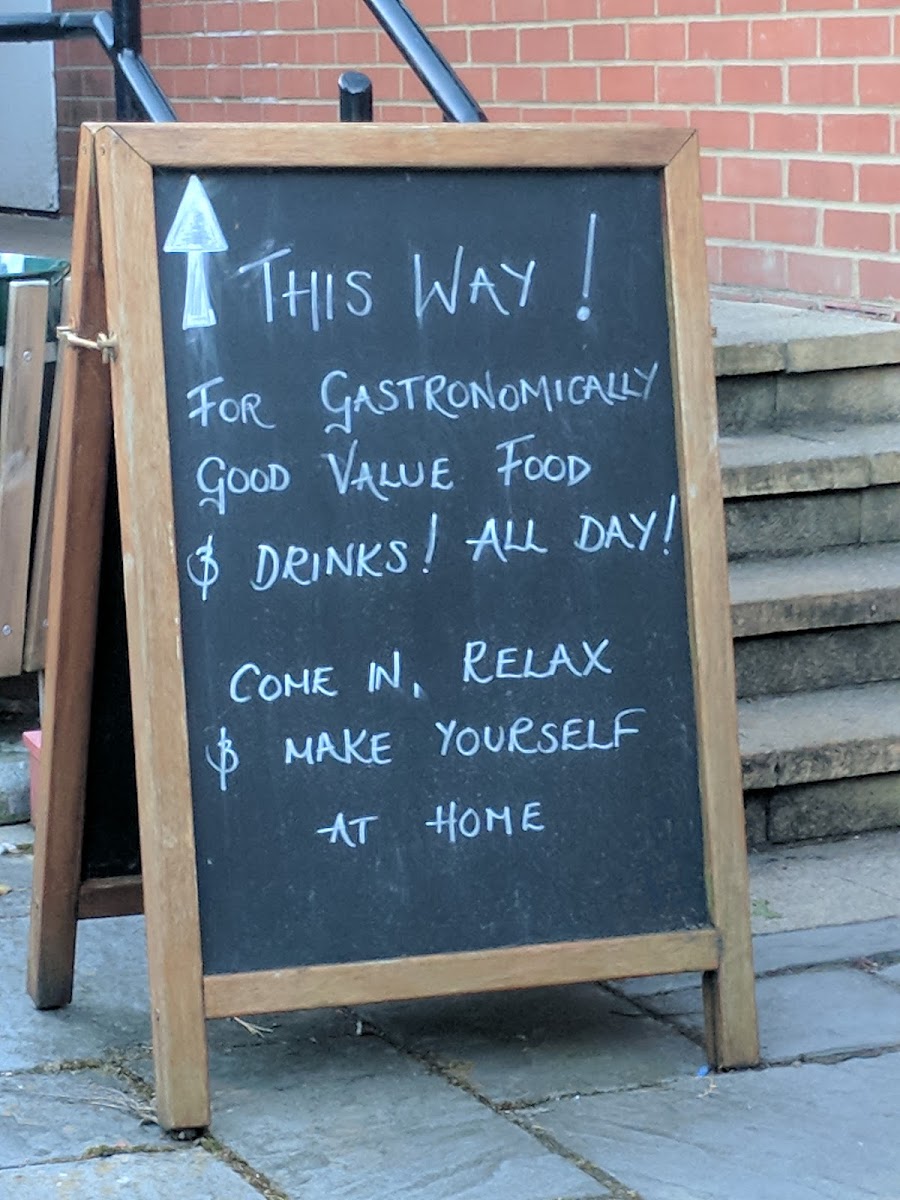 THIS WAY!
FOR GASTRONOMICALLY
GOOD VALUE FOOD
& DRINKS! ALL DAY!
COME IN, RELAX
& MAKE YOURSELF
AT HOME